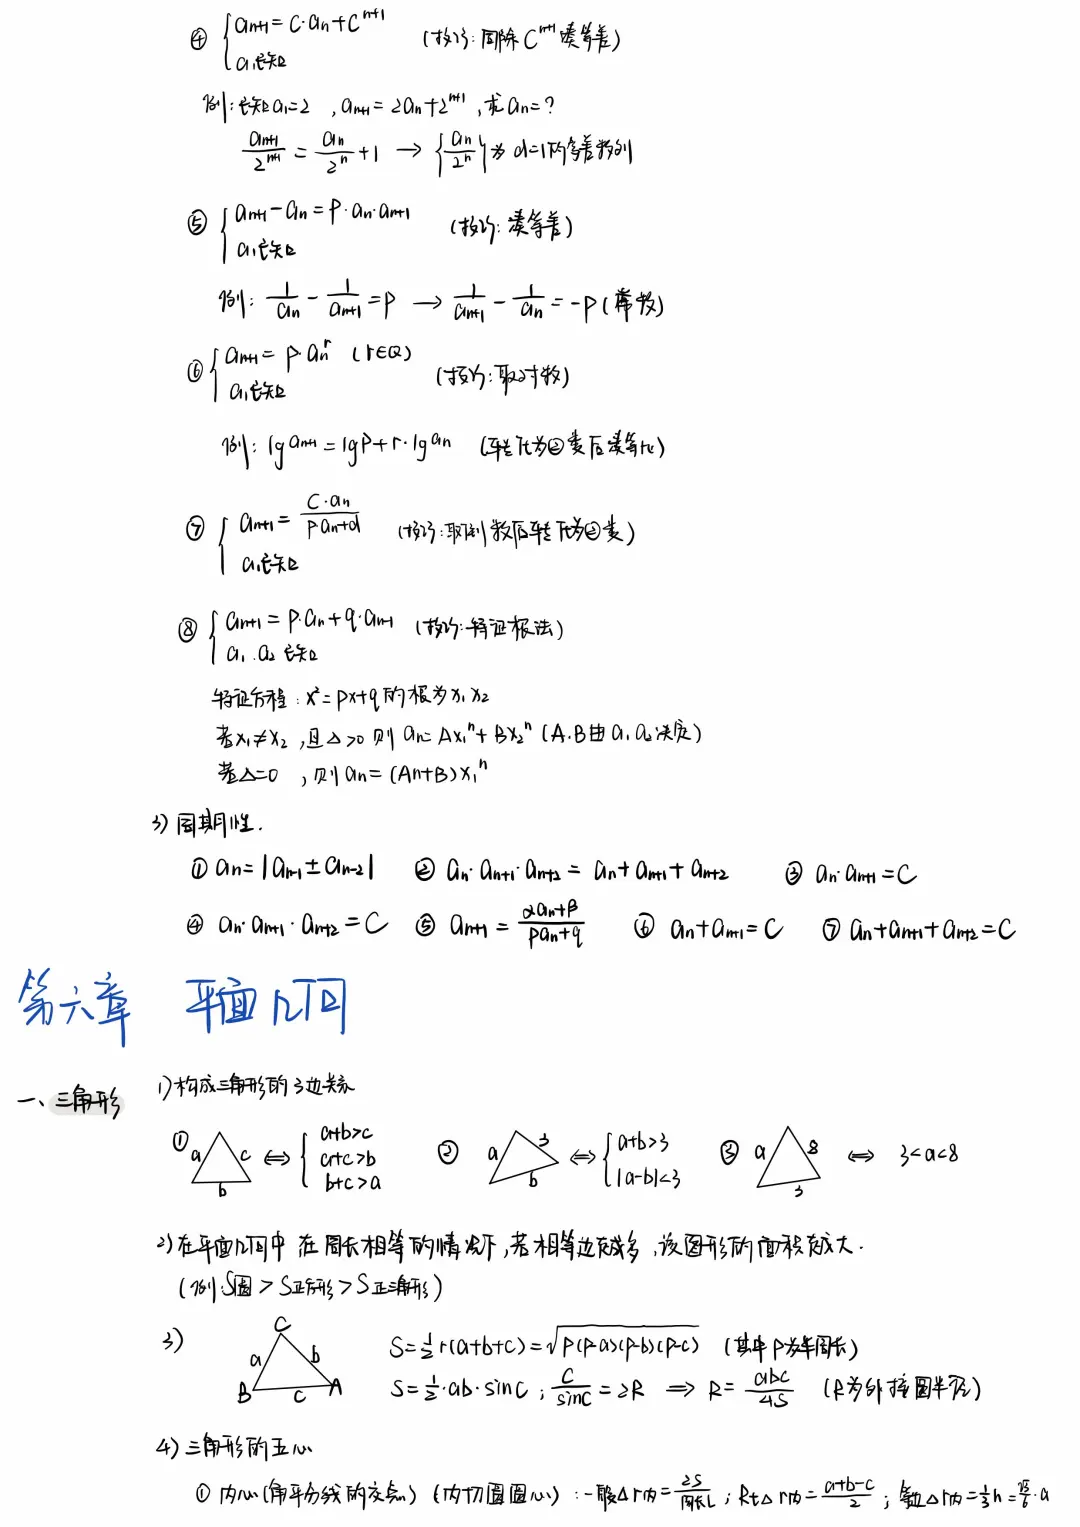 ④ { aₙ₊₁ = C·aₙ + Cⁿ⁺¹ (技巧: 同除 Cⁿ⁺¹ 凑等差)
a₁已知
例: 已知 a₁=2 , aₙ₊₁ = 2aₙ+2ⁿ⁺¹ , 求 aₙ=?
aₙ₊₁/2ⁿ⁺¹ = aₙ/2ⁿ + 1 → {aₙ/2ⁿ} 为 d=1的等差数列
⑤ { aₙ₊₁ - aₙ = P·aₙ·aₙ₊₁ (技巧: 凑等差)
a₁已知
例: 1/aₙ - 1/aₙ₊₁ = P → 1/aₙ₊₁ - 1/aₙ = -P (常数)
⑥ { aₙ₊₁ = p·aₙʳ (r∈Q) (技巧: 取对数)
a₁已知
例: lg aₙ₊₁ = lg P + r·lg aₙ (转化为②类后凑等比)
⑦ { aₙ₊₁ = C·aₙ/(Paₙ+d) (技巧: 取倒数后转化为②类)
a₁已知
⑧ { aₙ₊₁ = P·aₙ + q·aₙ₋₁ (技巧: 特征根法)
a₁.a₂ 已知
特征方程: x² = px+q 的根为 x₁ x₂
若x₁≠x₂ ,且△>0 则 aₙ= Ax₁ⁿ + Bx₂ⁿ (A.B由 a₁ a₂决定)
若△=0 , 则 aₙ = (An+B)x₁ⁿ
3) 周期性.
① aₙ = |aₙ₋₁ ± aₙ₋₂| ② aₙ·aₙ₊₁·aₙ₊₂ = aₙ + aₙ₊₁ + aₙ₊₂ ③ aₙ·aₙ₊₁ = C
④ aₙ·aₙ₊₁·aₙ₊₂ = C ⑤ aₙ₊₁ = (αaₙ+β)/(paₙ+q) ⑥ aₙ+aₙ₊₁ = C ⑦ aₙ+aₙ₊₁+aₙ₊₂ = C
第六章 平面几何
一、三角形 1) 构成三角形的3边关系
① a c b ⇔ { a+b>c a+c>b b+c>a ② a 3 b ⇔ { a+b>3 |a-b|<3 ③ a 8 3 ⇔ 3<a<8
2) 在平面几何中 在周长相等的情况下,若相等边越多,该图形的面积越大.
(例: S圆 > S正方形 > S正三角形)
3) C a b B c A S = ½r(a+b+c) = √P(P-a)(P-b)(P-c) (其中P为半周长)
S = ½·ab·sinC ; C/sinC = 2R ⇒ R = abc/4S (R为外接圆半径)
4) 三角形的五心
① 内心(角平分线的交点) (内切圆圆心) : 一般△ r内 = 2S/周长L ; Rt△ r内 = (a+b-c)/2 ; 等边△ r内 = ⅓h = √3/6·a